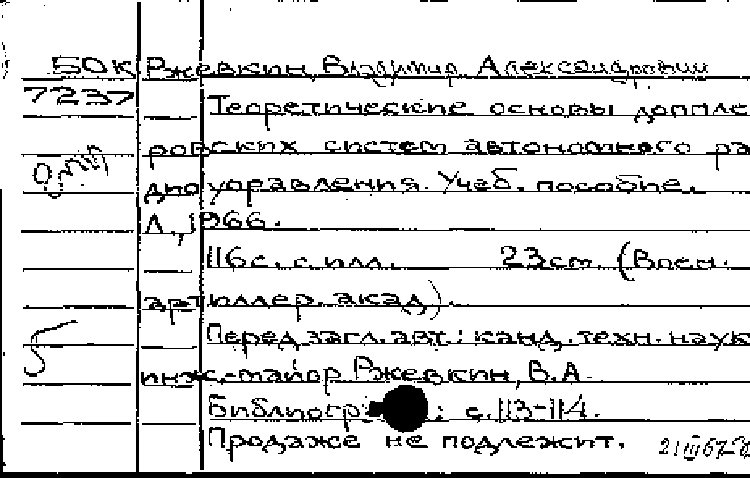 50К Ржевкин, Владимир Александрович
7237 Теоретические основы доппле
ровских систем автономного ра
диоуправления. Учеб. пособие.
Л., 1966.
116с. с илл. 23см. (Воен.
артиллер. акад).
Перед загл. авт.: канд. техн. наук
инж.-майор Ржевкин, В.А.
Библиогр : с.113-114.
Продаже не подлежит. 21 III 67